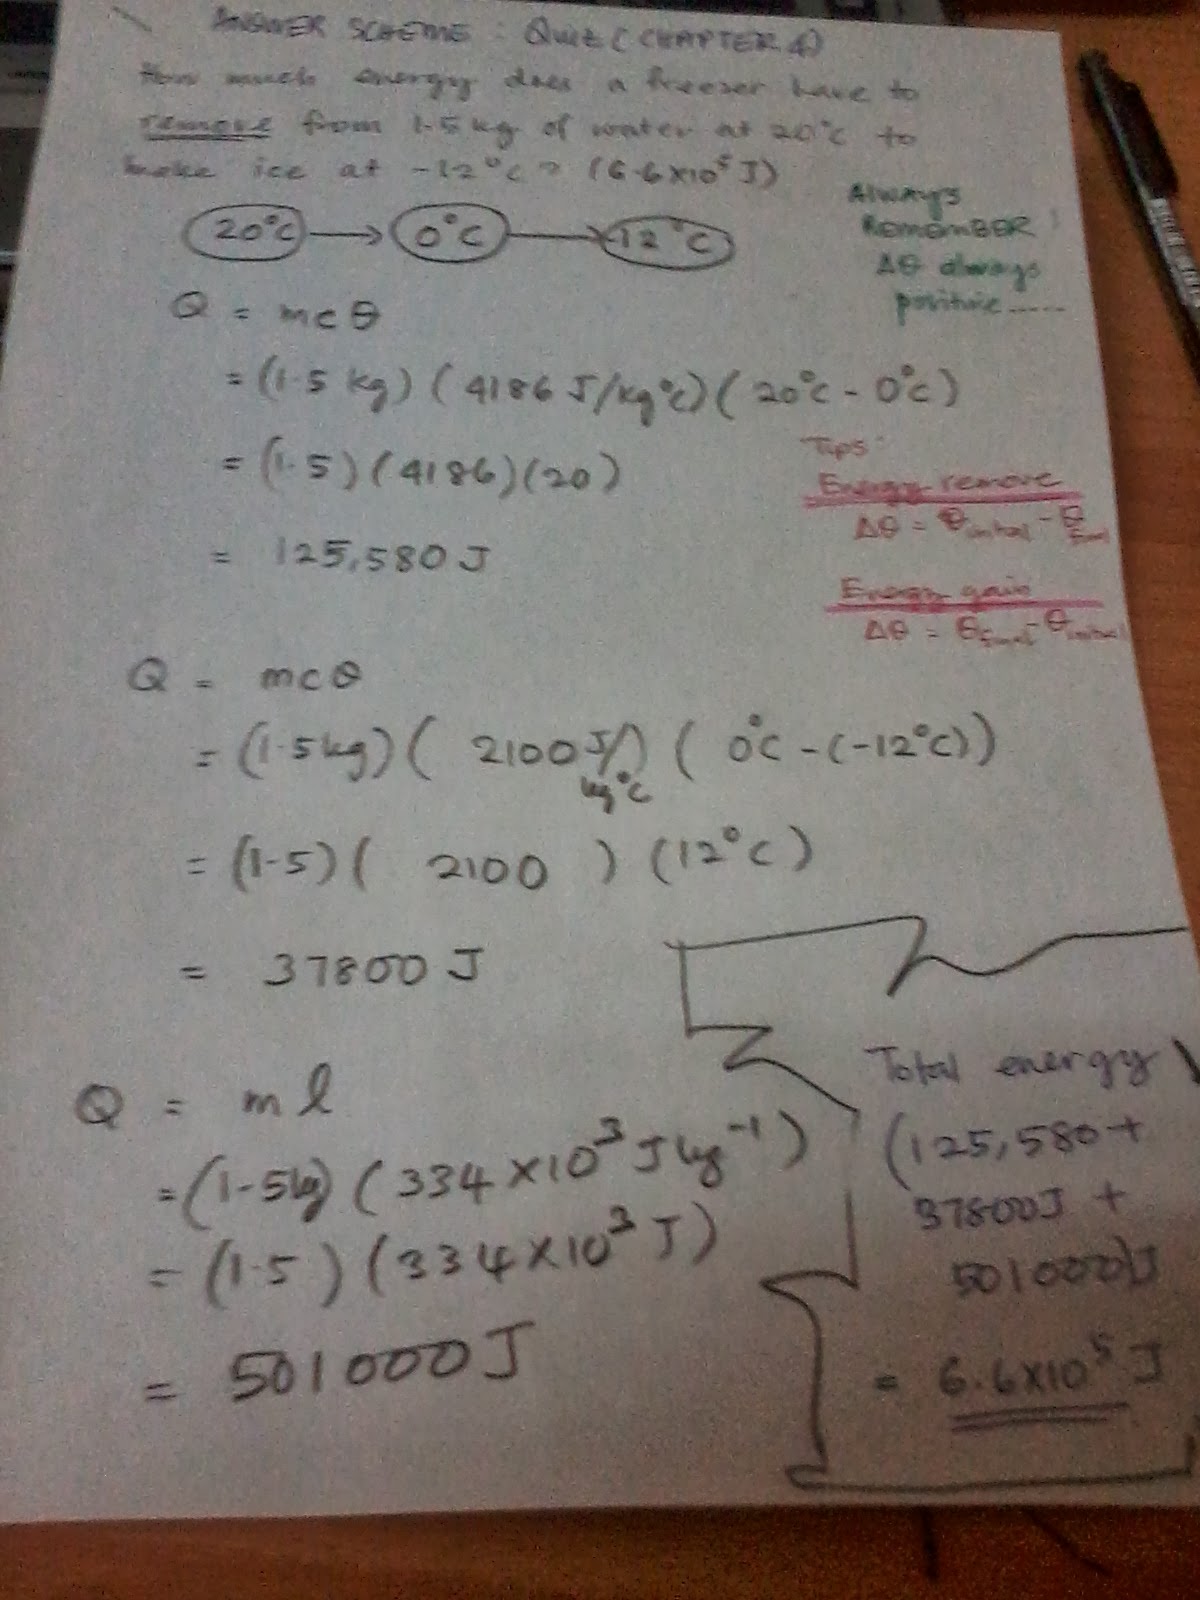 ANSWER SCHEME : QUIZ (CHAPTER 4)
How much energy does a freezer have to
remove from 1.5 kg of water at 20°C to
make ice at -12°C? (6.6×10⁵ J)
20°C → 0°C → -12°C
Always
Remember!
Δθ always
positive......
Q = mcθ
= (1.5 kg) (4186 J/kg°C) (20°C - 0°C)
= (1.5) (4186) (20)
= 125,580 J
Tips:
Energy remove
Δθ = θinitial - θfinal
Energy gain
Δθ = θfinal - θinitial
Q = mcθ
= (1.5 kg) ( 2100 J/kg°C ) ( 0°C - (-12°C))
= (1.5) ( 2100 ) (12°C)
= 37800 J
Q = ml
= (1.5 kg) (334 ×10³ J kg⁻¹)
= (1.5) (334 ×10³ J)
= 501000 J
Total energy
(125,580 +
37800J +
501000)J
= 6.6×10⁵ J